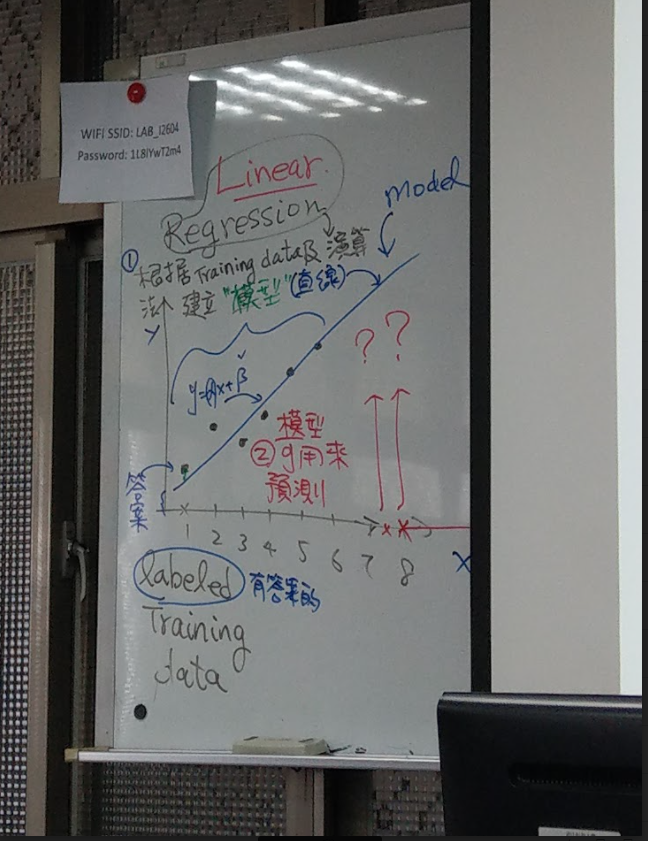 WIFI SSID: LAB_I2604
Password: 1L8IYwT2m4
Linear
Regression
Model
① 根据 Training data及 演算
法 建立 "模型" (直線)
y
y=αx+β
? ?
模型
② 可用來
預測
答案
1 2 3 4 5 6 7 8
x
labeled 有答案的
Training
data